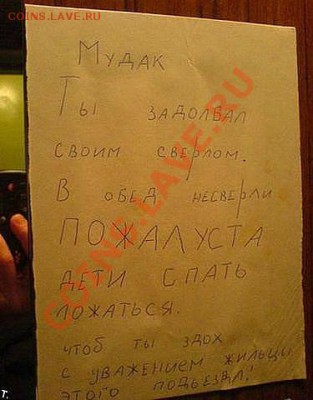 COINS.LAVE.RU
Мудак
Ты задолбал
своим сверлом.
В обед несверли
ПОЖАЛУСТА
дети спать
ложаться.
чтоб ты здох
с уважением жильцы
этого подьезда!
COINS.LAVE.RU